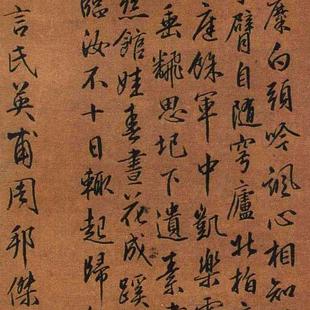 白頭吟諷心相知
臂自随穹廬拍
庭餘軍中凱樂
垂飜思圯下遺素
館娃春晝花成蹊
臨汝不十日輒起歸
言氏英甫周邦傑